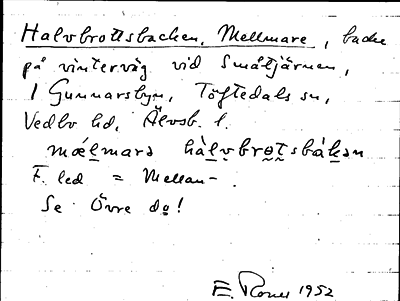 Halvbrottsbacken, Mellmare, backe
på vinterväg vid Småtjärnen,
i Gunnarsbyn, Töftedals sn,
Vedbo hd, Älvsb. l.
mæ̀lmarə hàlvbrɵtsbákən
F. led = Mellan-.
Se Övre do!
E. Rones 1952